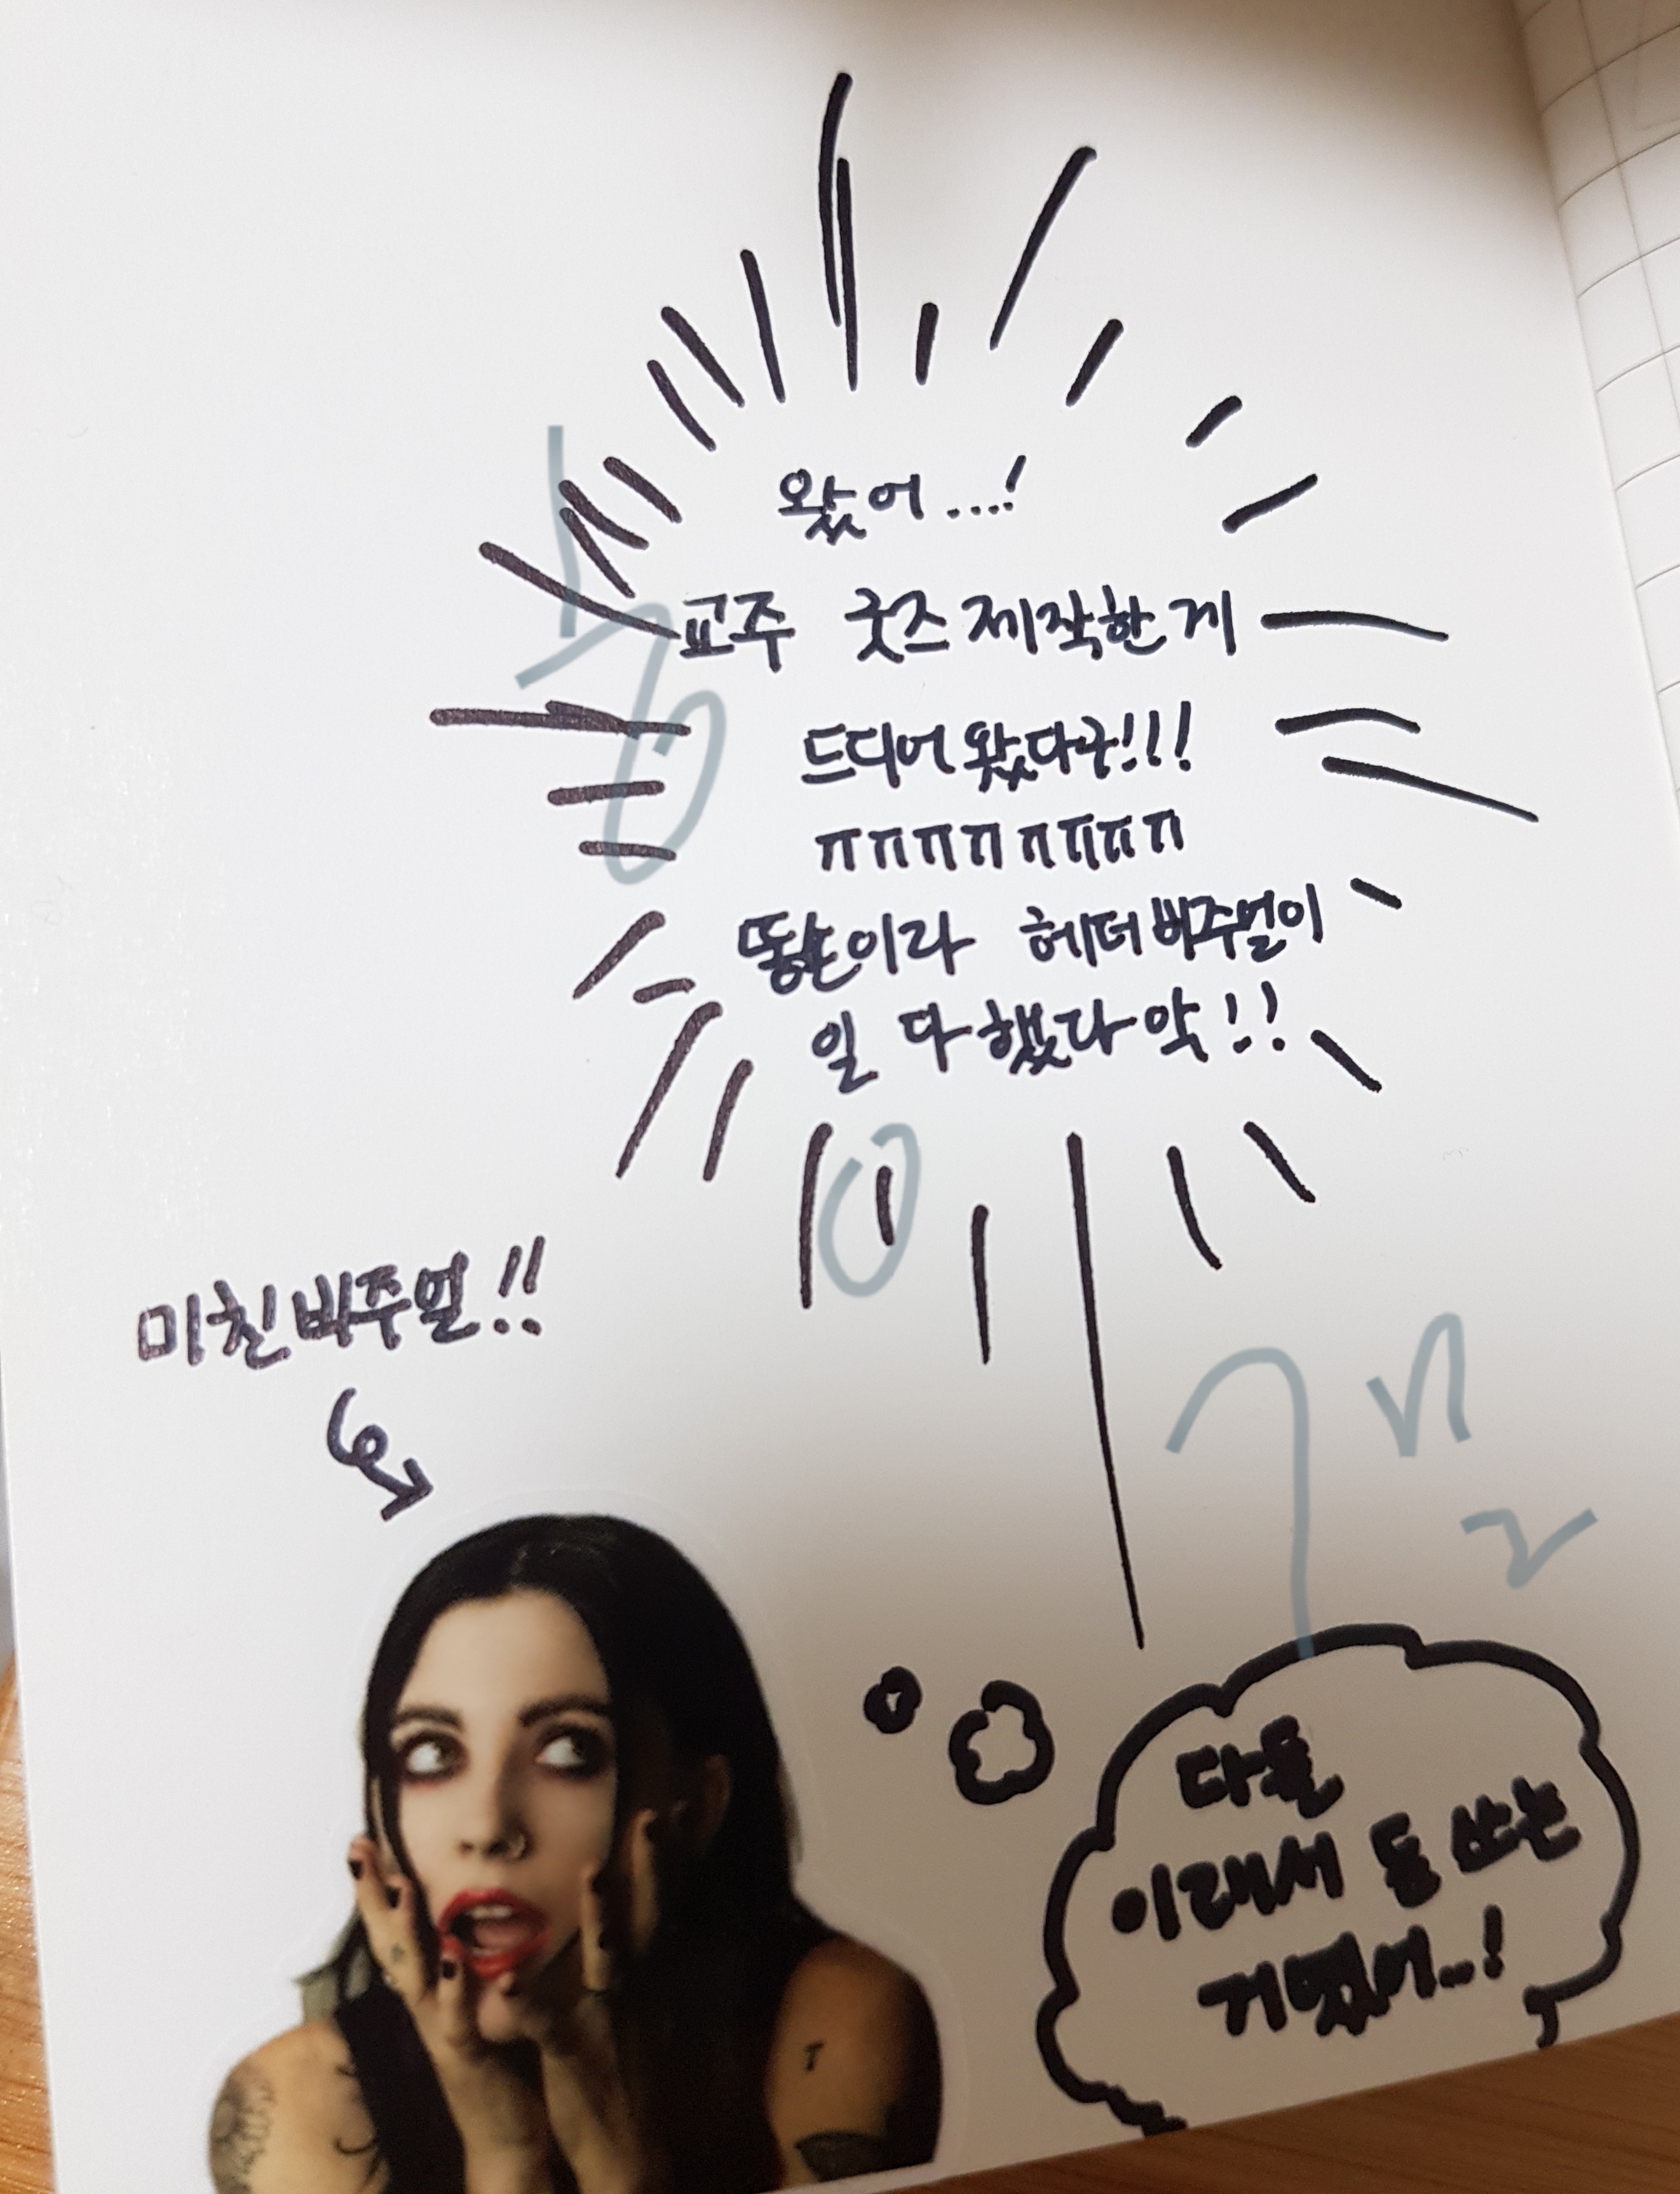 왔어...!
교주 굿즈 제작한 게
드디어 왔다구!!!
ㅠㅠㅠㅠㅠㅠㅠㅠ
똥손이라 헤더 비주얼이
일 다 했다 악!!
미친 비주얼!!
다들
이래서 돈 쓰는
거였어...!